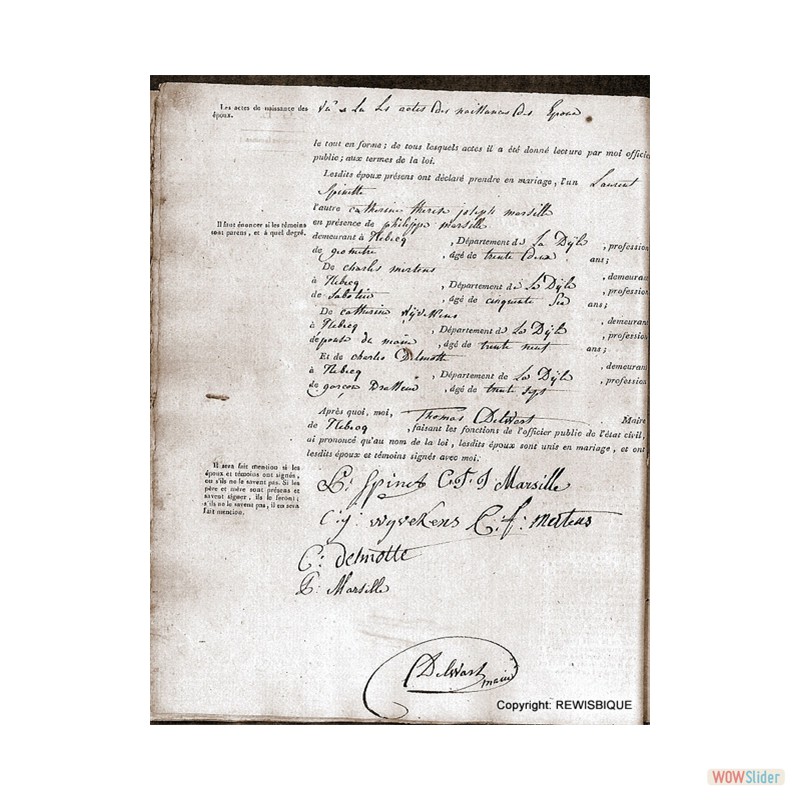 Les actes de naissance des époux.
Vu & Lu Les actes des naissances des Epoux
le tout en forme; de tous lesquels actes il a été donné lecture par moi officier
public; aux termes de la loi.
Lesdits époux présens ont déclaré prendre en mariage, l'un Laurent
Spinette
l'autre catherine therese joseph marsille
Il faut énoncer si les témoins
sont parens, et à quel degré.
en présence de philippe marsille
demeurant à Rebecq , Département de La Dyle , profession
de geometre , âgé de trente deux ans;
De charles mertens , demeurant
à Rebecq , Département de La Dyle , profession
de Sabotier , âgé de cinquante Six ans;
De catherine Wyvekens , demeurant
à Rebecq , Département de La Dyle , profession
épouse du maire , âgé de trente neuf ans;
Et de charles Delmotte , demeurant
à Rebecq , Département de La Dyle , profession
de garçon Brasseur , âgé de trente sept
Après quoi, moi, Thomas Delwart Maire
de Rebecq , faisant les fonctions de l'officier public de l'état civil,
ai prononcé qu'au nom de la loi, lesdits époux sont unis en mariage, et ont
lesdits époux et témoins signés avec moi.
Il sera fait mention si les
époux et témoins ont signé,
ou s'ils ne le savent pas. Si les
père et mère sont présens et
savent signer, ils le feront;
s'ils ne le savent pas, il en sera
fait mention.
L: Spinet C. T. J Marsille
C. J: wyvekens C: f: mertens
C: delmotte
P: Marsille
Delwart
maire
Copyright: REWISBIQUE
WOWSlider